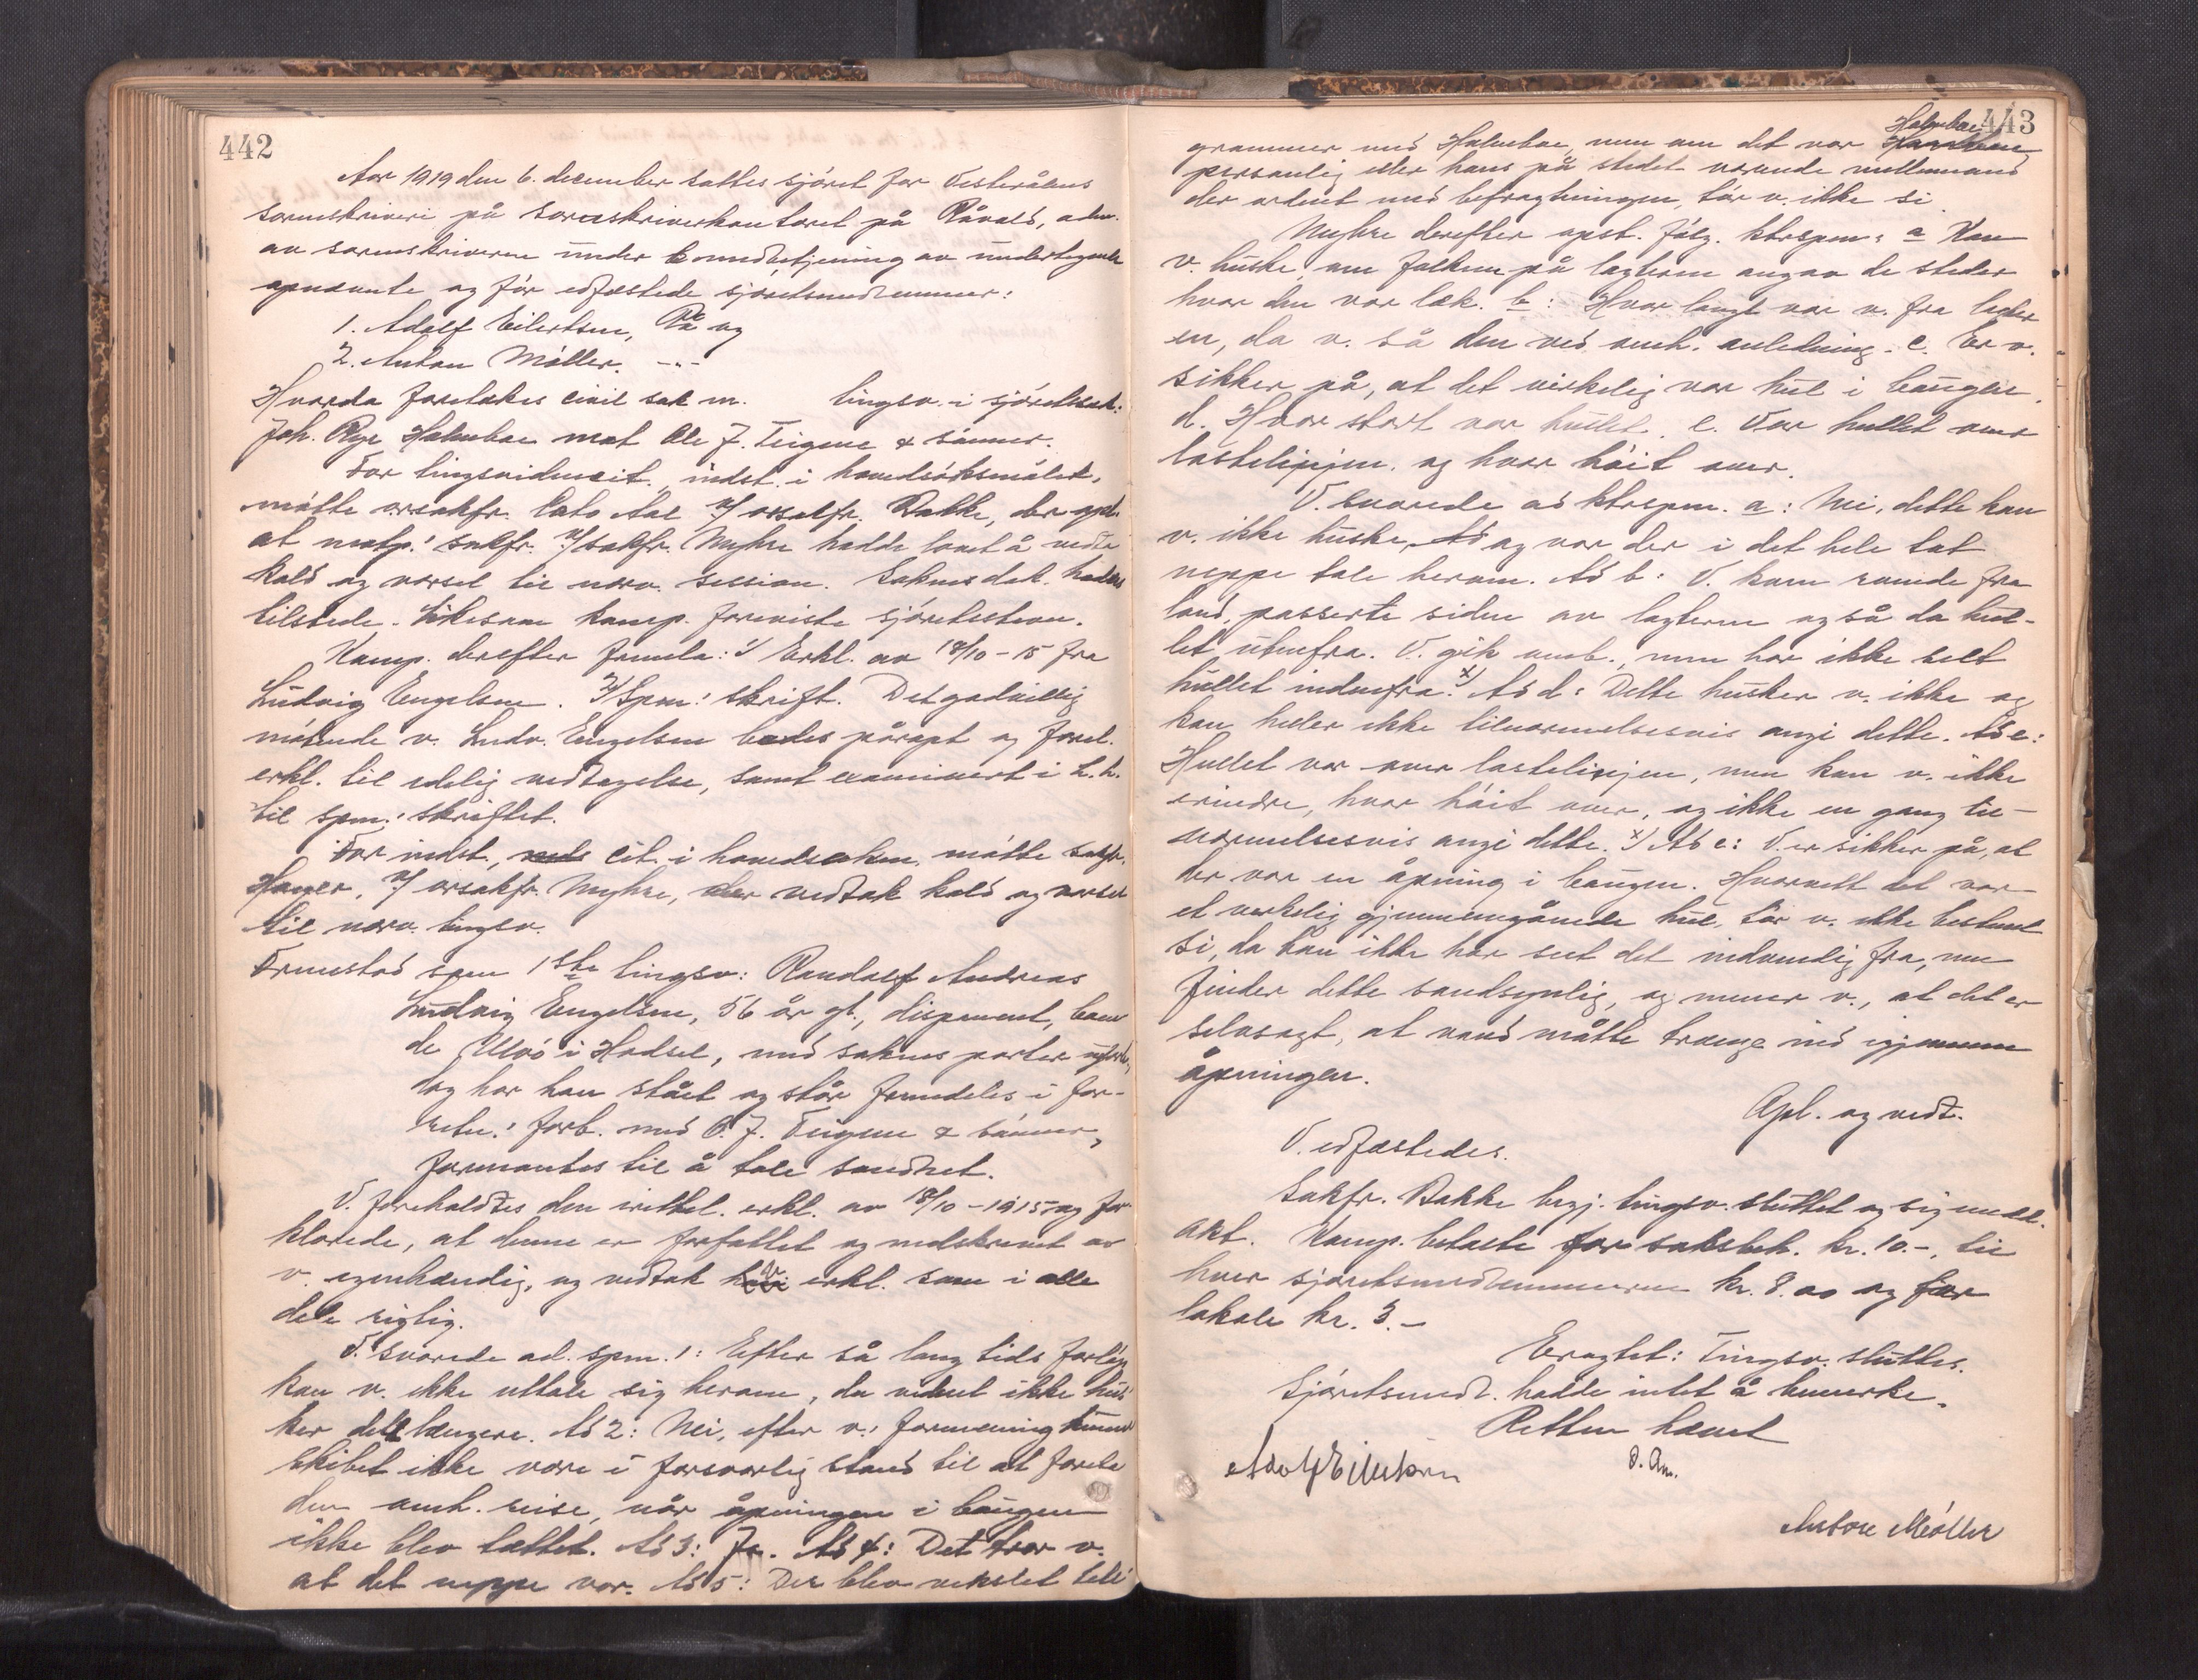 442
Aar 1919 den 6. december sattes sjöret for Vesterålens
sorenskriveri på sorenskriverkontoret på Råvald, adm.
av sorenskriveren under medbetjening av undertegnede
opnævnte og för edfæstede sjöretsmedlemmer:
1. Adolf Eilertsen, Rå og
2. Anton Möller. -"-
Hvorda foretokes civil sak nr. tingsv. i sjöretssak:
Joh. Rye Holmboe mot Ole J. Teigene & sönner.
For tingsvidnecit., indst. i hovedsöksmålet,
mötte orsakfr. Cato Aal v/ orsakfr. Bakke, der opl.
at motp.s sakfr. v/ sakfr. Myhre hadde lovet å vedta
kald og varsel til nærv. session. Saksens dok. haddes
tilstede. Likesom komp. foreviste sjöretsstevn.
Komp. derefter fremla: 1/ Erkl. av 18/10-15 fra
Ludvig Engelsen. 2/ Spm.s skrift. Det godvillig
mötende v. Ludv. Engelsen bedes påropt og forel.
erkl. til edelig vedtagelse, samt examinert i h.h.
til spm.s skriftet.
For indst. cit. i hovedsaken mötte sakfr.
Hager, v/ orsakfr. Myhre, der vedtok kald og varsel
til nærv. tingsv.
Fremstod som 1ste tingsv: Randolf Andreas
Ludvig Engelsen, 56 år gl., disponent, boen
de Ulvö i Hadsel, med saksens parter ubesl.,
dog har han stået og står fremdeles i for-
retn.s forb. med O. J. Teigene & sönner,
formantes til å tale sandhet.
V. foreholdtes den irettel. erkl. av 18/10-1915 og for
klarede, at denne er forfattet og nedskrevet av
v. egenhændig, og vedtok erkl. som i alle
dele rigtig.
V. svarede ad. spm. 1: Efter så lang tids forlöp
kan v. ikke uttale sig herom, da vidnet ikke hus
ker det længere. Ad 2: Nei, efter v.s formening kunde
skibet ikke være i forsvarlig stand til at foreta
den omh. reise, når åpningen i baugen
ikke blev tættet. Ad 3: Ja. Ad 4: Det tror v.
at det neppe var. Ad 5: Der blev vekslet tele
443
Holmboe
grammer med Holmboe, men om det var
personlig eller hans på stedet værende mellemand
der ordnet med befragtningen, tör v. ikke si
Myhre derefter opst. fölg. ktrspm: a Kan
v. huske, om folkene på lagteren angav de steder
hvor den var læk. b: Hvor langt var v. fra lagter
en, da v. så den ved omh. anledning. c. Er v.
sikker på, at det virkelig var hul i baugen.
d. Hvor stort var hullet. e. Var hullet over
lastelinjen. og hvor höit over.
V. svarede ad ktrspm. a: Nei, dette kan
v. ikke huske, Ad og var der i det hele tat
neppe tale herom. Ad b: V. kom roende fra
land, passerte siden av lagteren og så da hul-
let utenfra. V. gik omb., men har ikke sett
hullet indenfra. x) Ad d: Dette husker v. ikke og
kan heller ikke tilnærmelsesvis angi dette. Ad e:
Hullet var over lastelinjen, men kan v. ikke
erindre, hvor höit over, og ikke en gang til-
nærmelsesvis angi dette. x) Ad c: V. er sikker på, at
der var en åpning i baugen. Hvorvidt det var
et virkelig gjennemgående hul, tör v. ikke bestemt
si, da han ikke har set det indvendig fra, men
finder dette sandsynlig, og mener v., at det er
selvsagt, at vand måtte trænge ind igjennem
åpningen.
Opl. og vedt.
V. edfæstedes.
Sakfr. Bakke begj. tingsv. sluttet og sig medd.
akt. Komp. betalte for saksbeh. kr. 10.-, til
hver sjöretsmedlemmerne kr. 8.00 og for
lokale kr. 3.-
Eragtet: Tingsv. sluttes.
Sjöretsmedl. hadde intet å bemerke.
Retten hævet
Adolf Eilertsen
Anton Möller